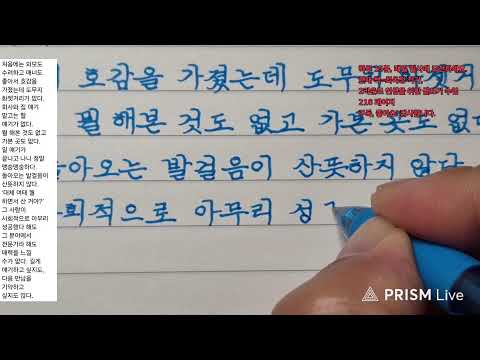 처음에는 외모도
수려하고 매너도
좋아서 호감을
가졌는데 도무지
화젯거리가 없다.
회사와 집 얘기
말고는 할
얘기가 없다.
뭘 해본 것도 없고
가본 곳도 없다.
일 얘기가
끝나고 나니 정말
맹숭맹숭하다.
돌아오는 발걸음이
산뜻하지 않다.
'대체 여태 뭘
하면서 산 거야?'
그 사람이
사회적으로 아무리
성공했다 해도
그 분야에서
전문가라 해도
매력을 느낄
수가 없다. 길게
얘기하고 싶지도,
다음 만남을
기약하고
싶지도 않다.
호감을 가졌는데 도무지
뭘 해본 것도 없고 가본 곳도 없다
돌아오는 발걸음이 산뜻하지 않다
회적으로 아무리 성
218 페이지
PRISM Live